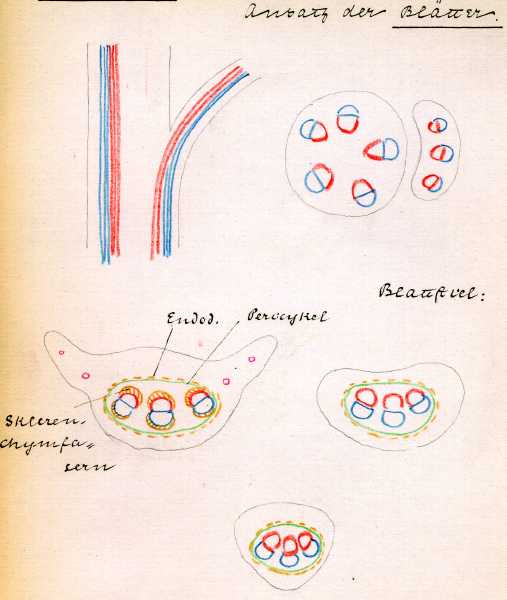 Ansatz der Blätter.
Blattstiel:
Endod. Perizykel
Skleren-
chymfa-
sern